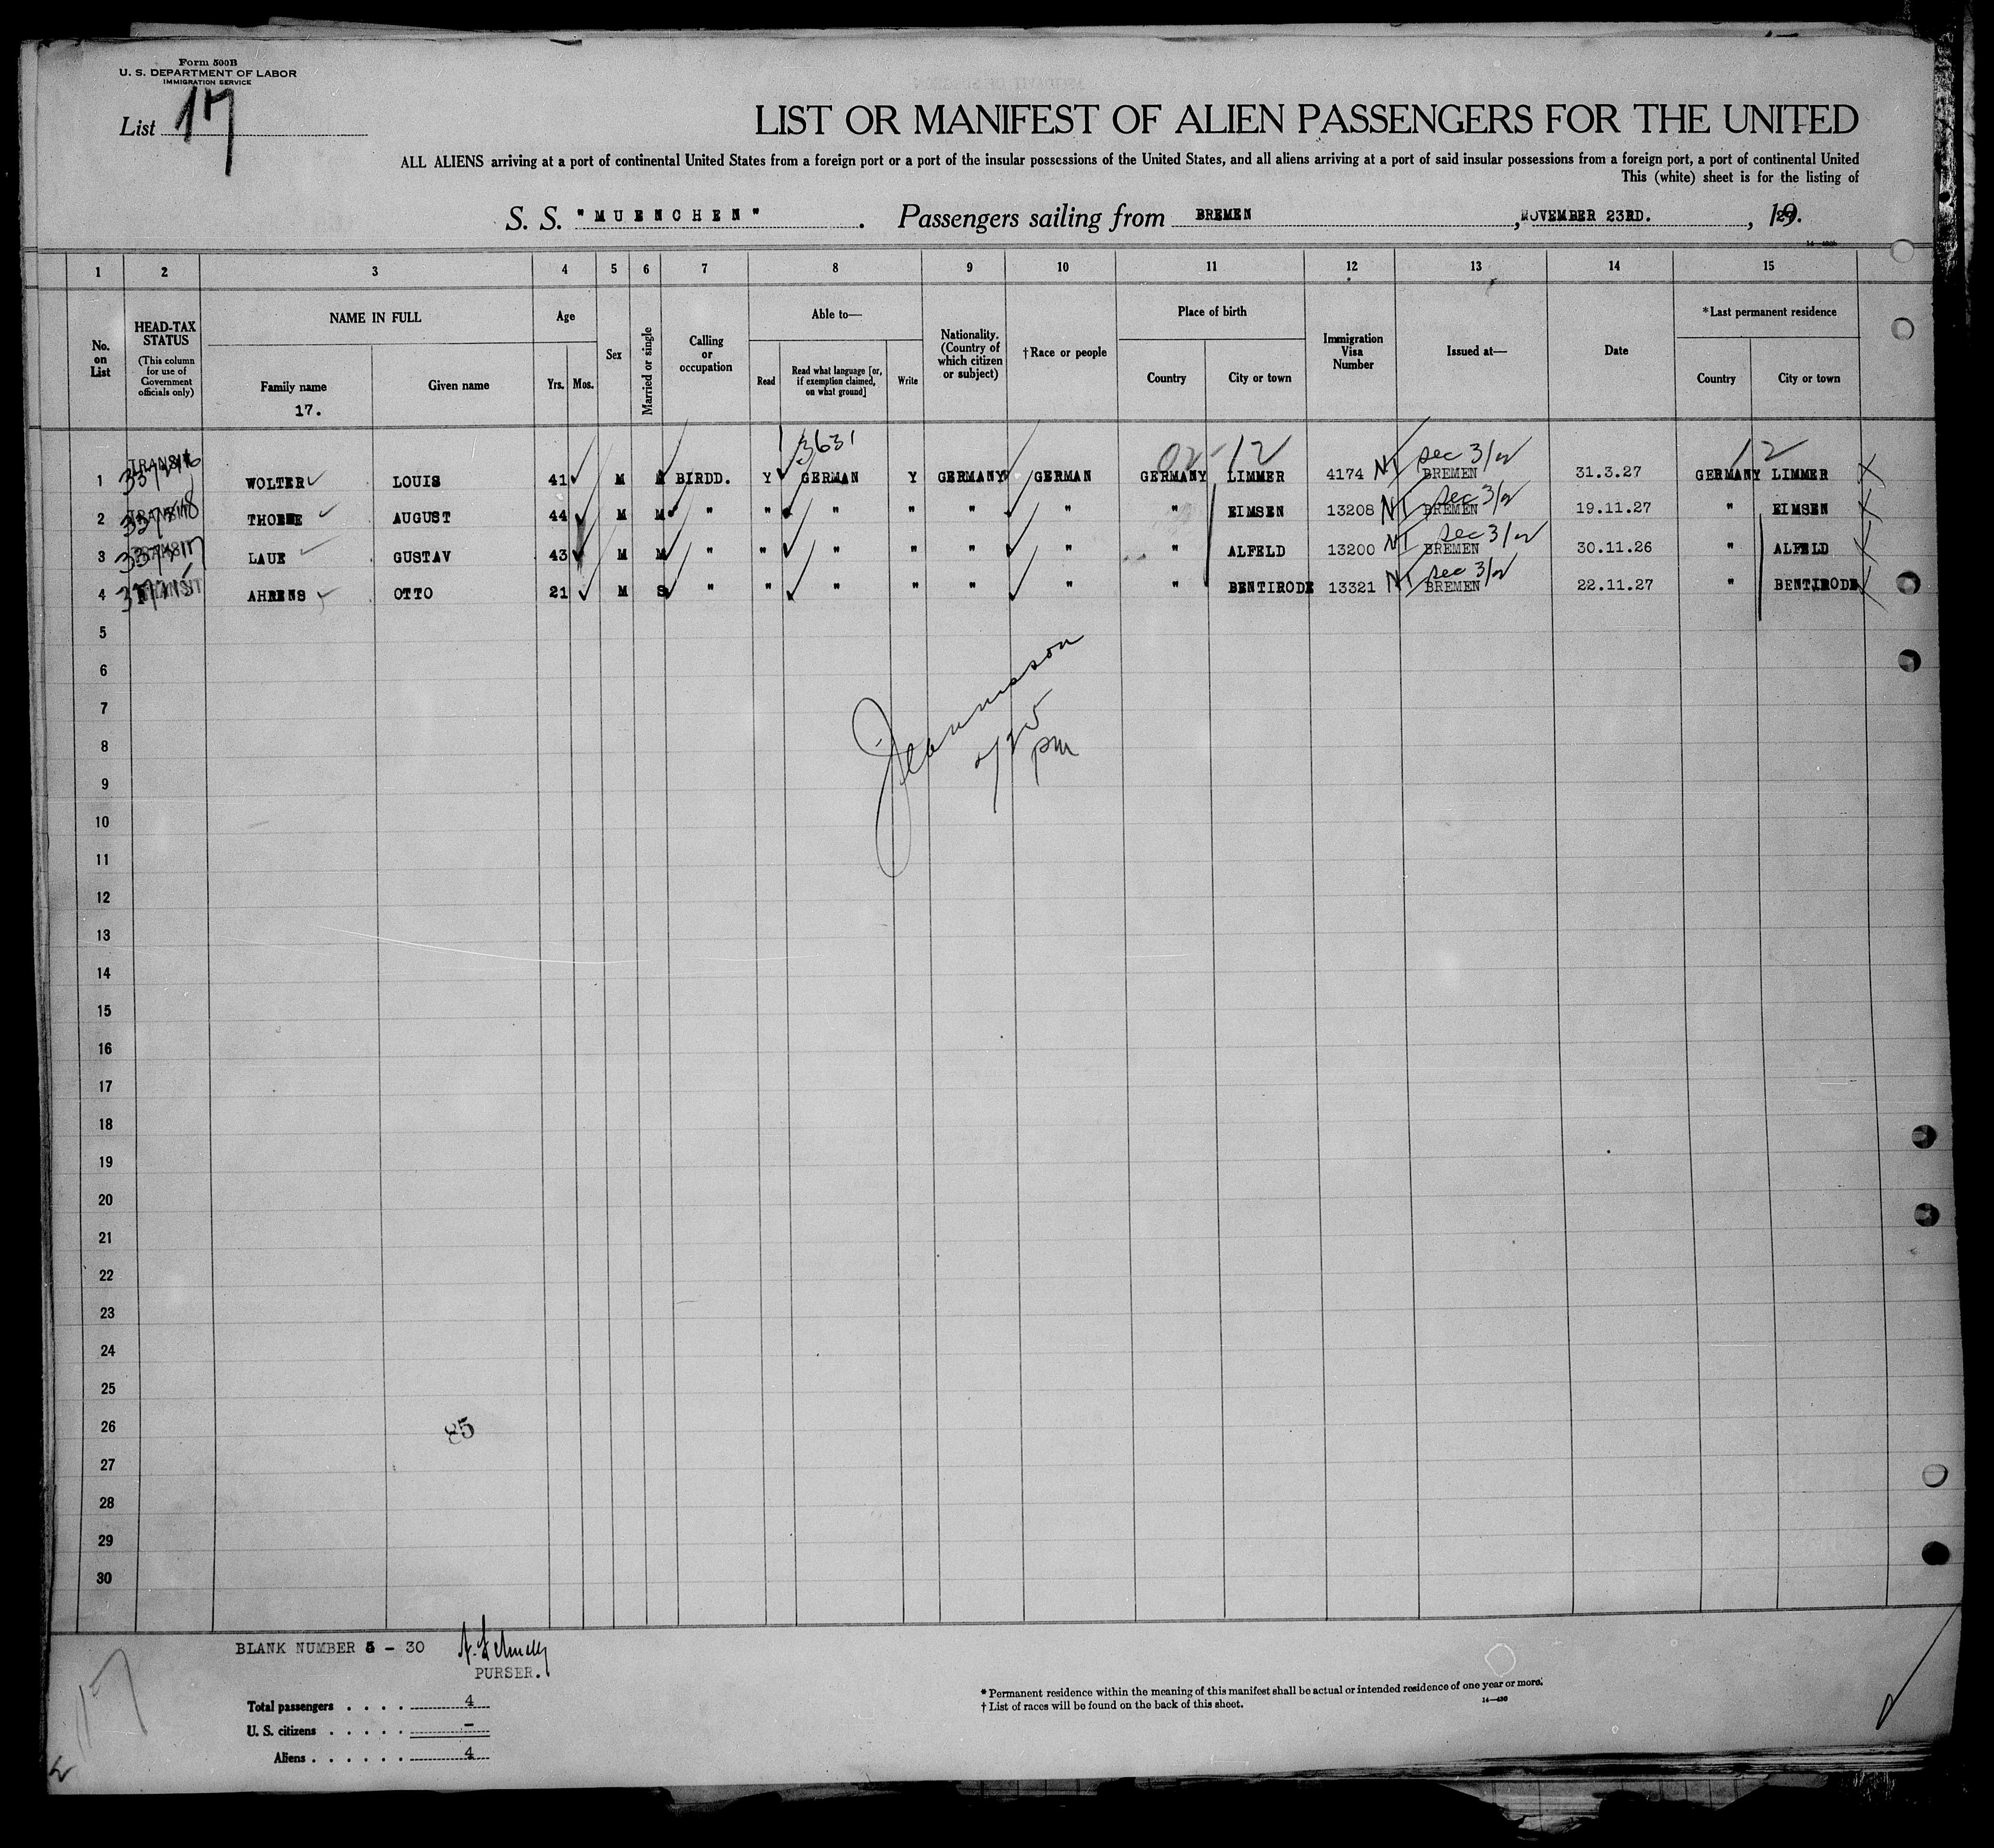 Form 500B
U. S. DEPARTMENT OF LABOR
IMMIGRATION SERVICE
List 17
LIST OR MANIFEST OF ALIEN PASSENGERS FOR THE UNITED
ALL ALIENS arriving at a port of continental United States from a foreign port or a port of the insular possessions of the United States, and all aliens arriving at a port of said insular possessions from a foreign port, a port of continental United
This (white) sheet is for the listing of
S. S. "MUENCHEN". Passengers sailing from BREMEN, NOVEMBER 23RD., 19
1 2 3 4 5 6 7 8 9 10 11 12 13 14 15
No. on List
HEAD-TAX STATUS
(This column for use of Government officials only)
NAME IN FULL
Family name
17.
Given name
Age
Yrs. Mos.
Sex
Married or single
Calling or occupation
Able to—
Read
Read what language [or, if exemption claimed, on what ground]
Write
Nationality. (Country of which citizen or subject)
†Race or people
Place of birth
Country
City or town
Immigration Visa Number
Issued at—
Date
*Last permanent residence
Country
City or town
3631
02-12
12
1 TRANSIT WOLTER LOUIS 41 M M BIRDD. Y GERMAN Y GERMANY GERMAN GERMANY LIMMER 4174 NI sec 3/2 BREMEN 31.3.27 GERMANY LIMMER
2 TRANSIT AUGUST 44 M M " " " " " " " EIMSEN 13208 NI sec 3/2 BREMEN 19.11.27 " EIMSEN
3 TRANSIT LAUE GUSTAV 43 M M " " " " " " " ALFELD 13200 NI sec 3/2 BREMEN 30.11.26 " ALFELD
4 TRANSIT AHRENS OTTO 21 M S " " " " " " " BENTIRODE 13321 NI sec 3/2 BREMEN 22.11.27 " BENTIRODE
5
6
7
8
pm
9
10
11
12
13
14
15
16
17
18
19
20
21
22
23
24
25
26
85
27
28
29
30
BLANK NUMBER 5 - 30
PURSER.
Total passengers . . . . 4
U. S. citizens . . . . . -
Aliens . . . . . . 4
* Permanent residence within the meaning of this manifest shall be actual or intended residence of one year or more.
† List of races will be found on the back of this sheet.
14—430